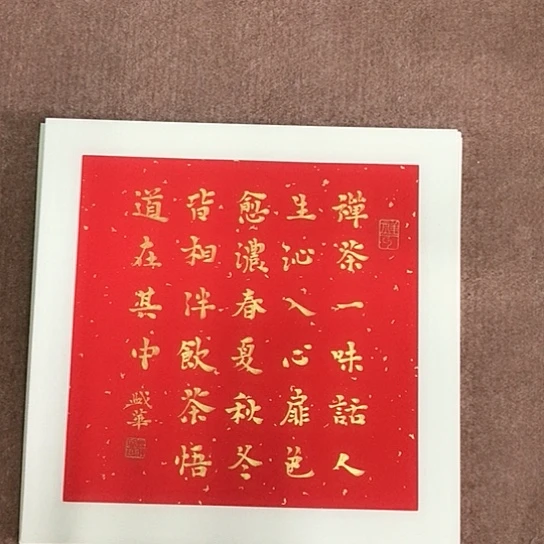 禪茶一味話人
生沁入心扉色
愈濃春夏秋冬
皆相泮飲茶悟
道在其中
華